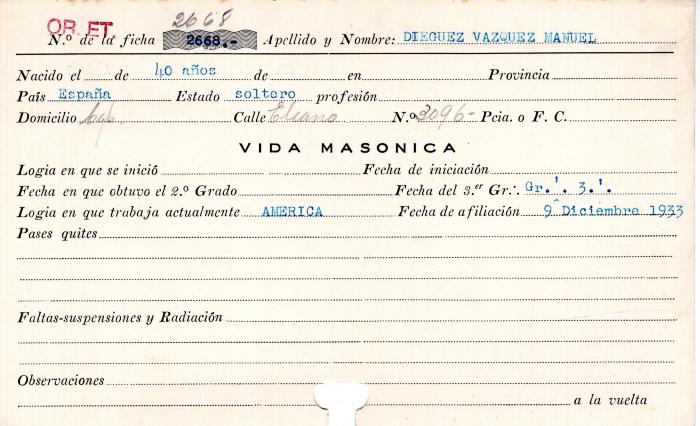 OR. FT.
2668
N.º de la ficha 2668.- Apellido y Nombre: DIEGUEZ VAZQUEZ MANUEL
Nacido el de 40 años de en Provincia
País España Estado soltero profesión
Domicilio Calle Elcano N.º 3096- Pcia. o F. C.
VIDA MASONICA
Logia en que se inició Fecha de iniciación
Fecha en que obtuvo el 2.º Grado Fecha del 3.er Gr.·. Gr.'. 3.'.
Logia en que trabaja actualmente AMERICA Fecha de afiliación 9 Diciembre 1933
Pases quites
Faltas-suspensiones y Radiación
Observaciones
a la vuelta